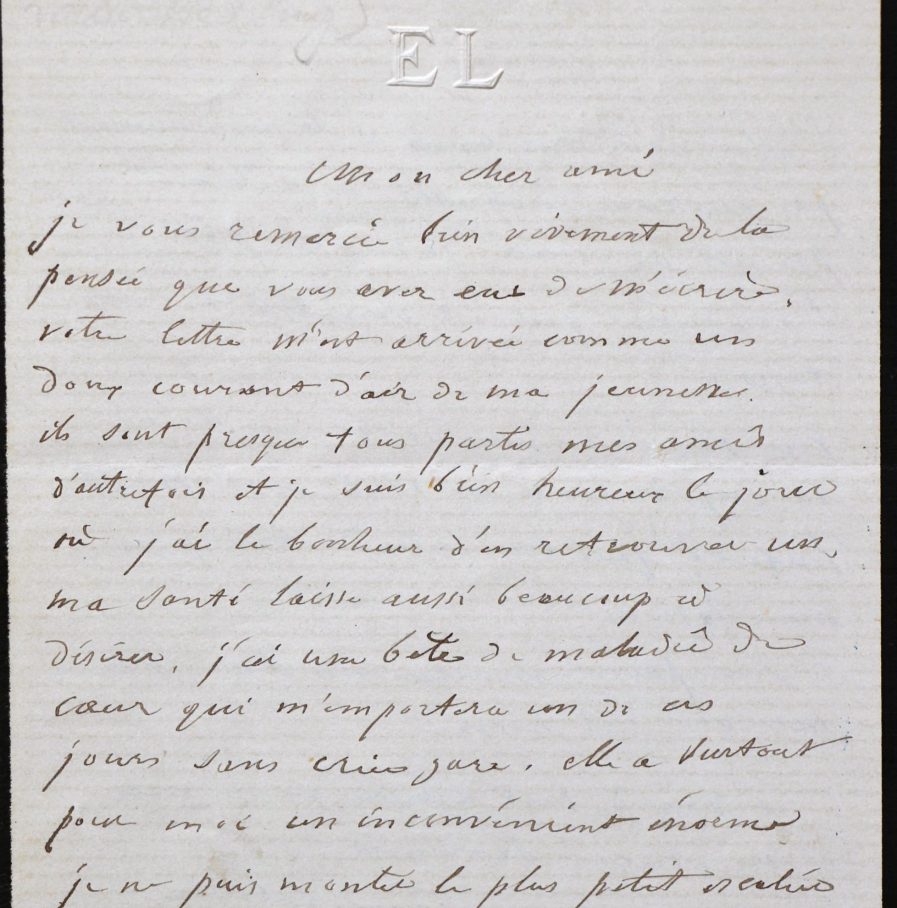 EL
Mon cher ami
je vous remercie bien vivement de la
pensée que vous avez eue de m'écrire.
votre lettre m'est arrivée comme un
doux courant d'air de ma jeunesse.
ils sont presque tous partis mes amis
d'autrefois et je suis bien heureux le jour
où j'ai le bonheur d'en retrouver un.
ma santé laisse aussi beaucoup à
désirer. j'ai une bête de maladie de
cœur qui m'emportera un de ces
jours sans crier gare. elle a surtout
pour moi un inconvénient énorme
je ne puis monter le plus petit escalier